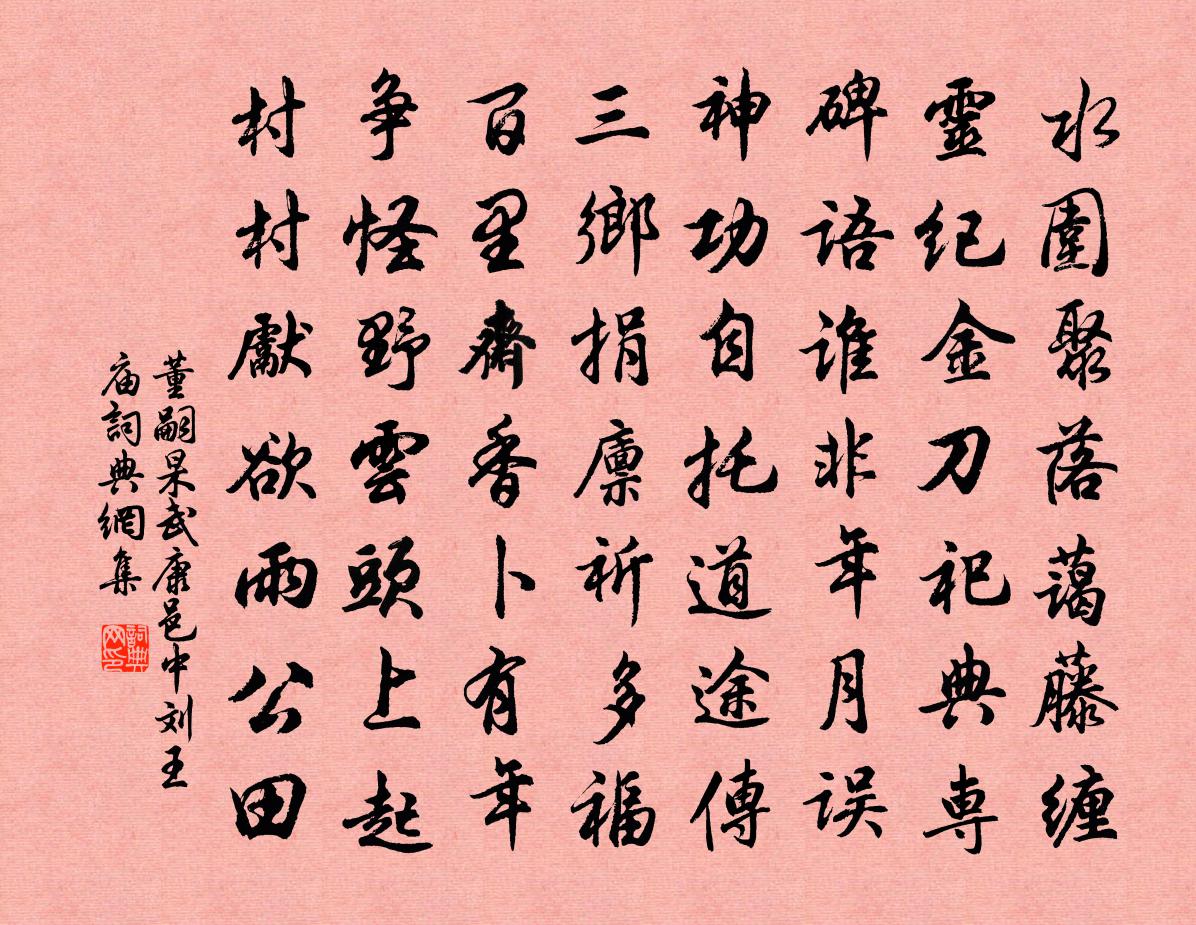 水圍聚落藹藤缠
靈纪金刀祀典専
碑语谁非年月误
神功自托道途傳
三鄉捐廪祈多福
百里齋香卜有年
争怪野雲頭上起
村村獻欲雨公田
董嗣杲武康邑中刘王
庙詞典網集
詞典网印